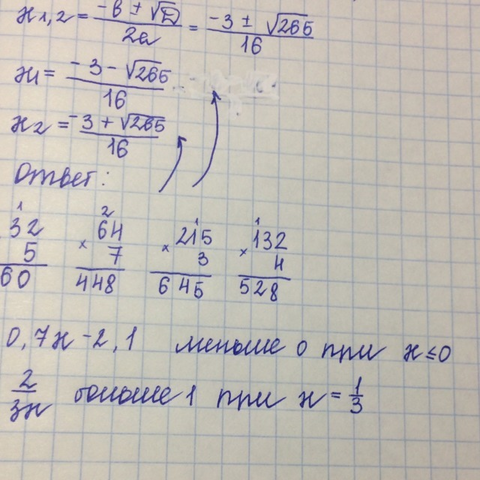 x₁,₂ = (-b ± √D)/2a = (-3 ± √265)/16
x₁ = (-3 - √265)/16
x₂ = (-3 + √265)/16
Ответ:
1 2 1 1
32 64 215 132
5 × 7 × 3 × 4
60 448 645 528
0,7x - 2,1 меньше 0 при x ≤ 0
2/3x больше 1 при x = 1/3